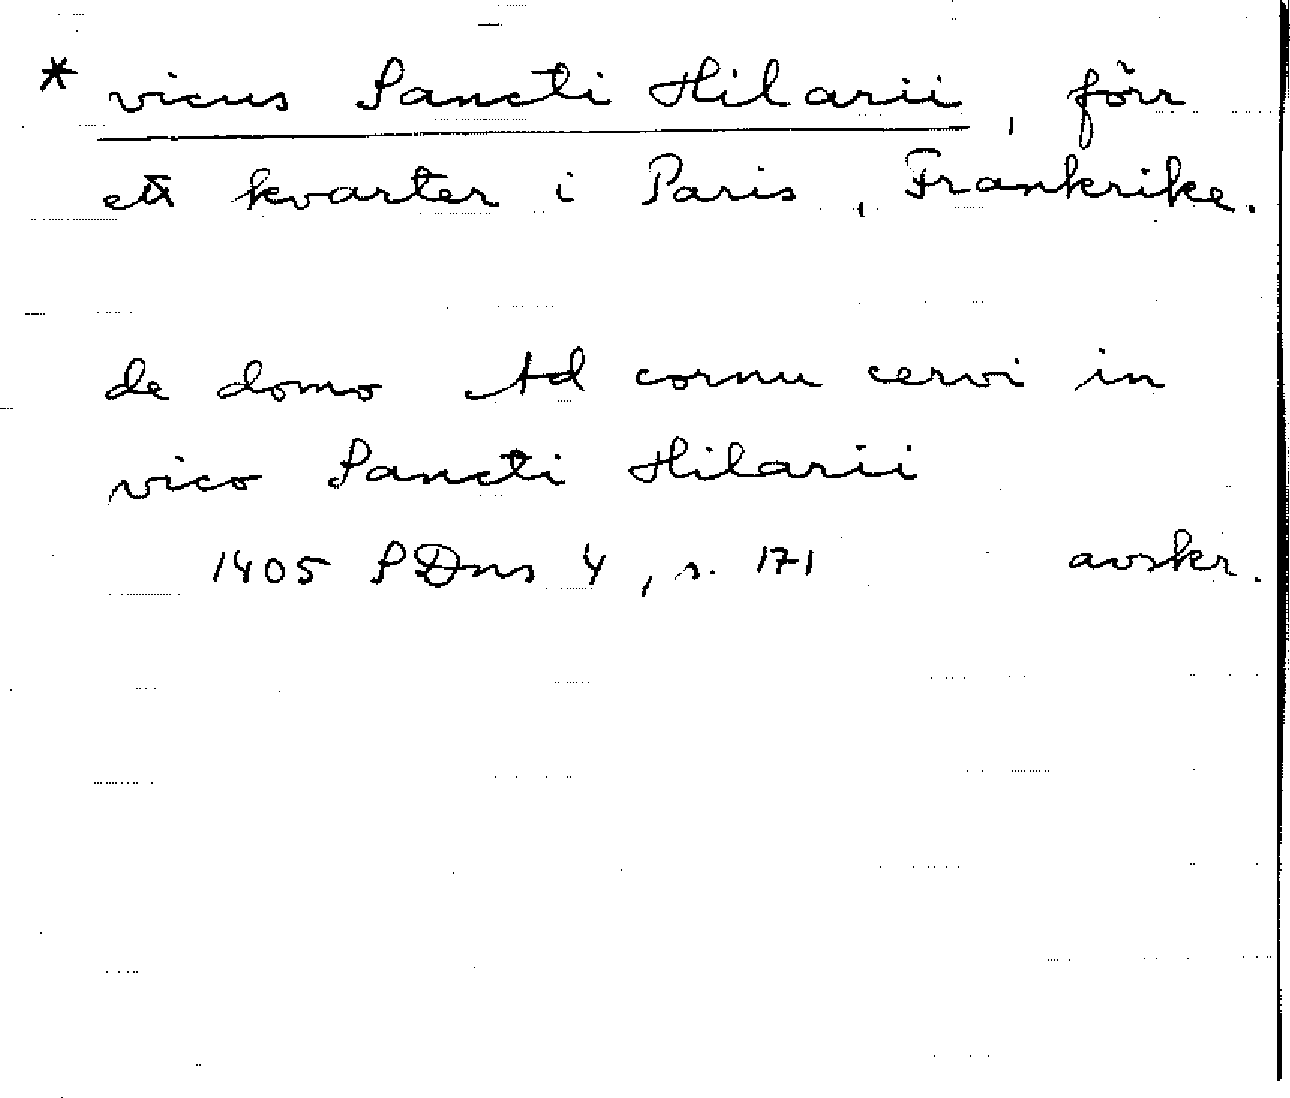 * vicus Sancti Hilarii, förr
ett kvarter i Paris, Frankrike.
de domo Ad cornu cervi in
vico Sancti Hilarii
1405 SDns 4, s. 171 avskr.